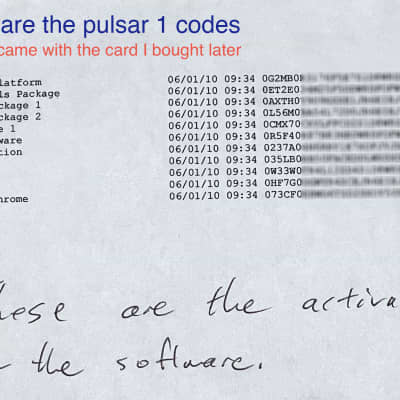 are the pulsar 1 codes
came with the card I bought later
latform 06/01/10 09:34 0G2MB0
ls Package 06/01/10 09:34 0ET2E0
ckage 1 06/01/10 09:34 0AXTH0
ckage 2 06/01/10 09:34 0L56M0
e 1 06/01/10 09:34 0CMX70
ware 06/01/10 09:34 0R5F40
tion 06/01/10 09:34 0237A0
06/01/10 09:34 035LB0
06/01/10 09:34 0W33W0
06/01/10 09:34 0HF7G0
hrome 06/01/10 09:34 073CF0
hese are the activa
the software.